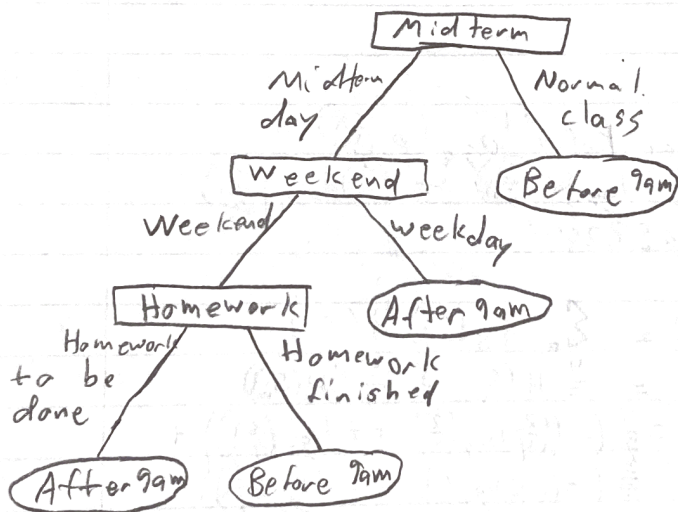 Midterm
Midterm
day
Normal
class
Weekend
Before 9am
Weekend
weekday
Homework
After 9am
Homework
to be
done
Homework
finished
After 9am
Before 9am